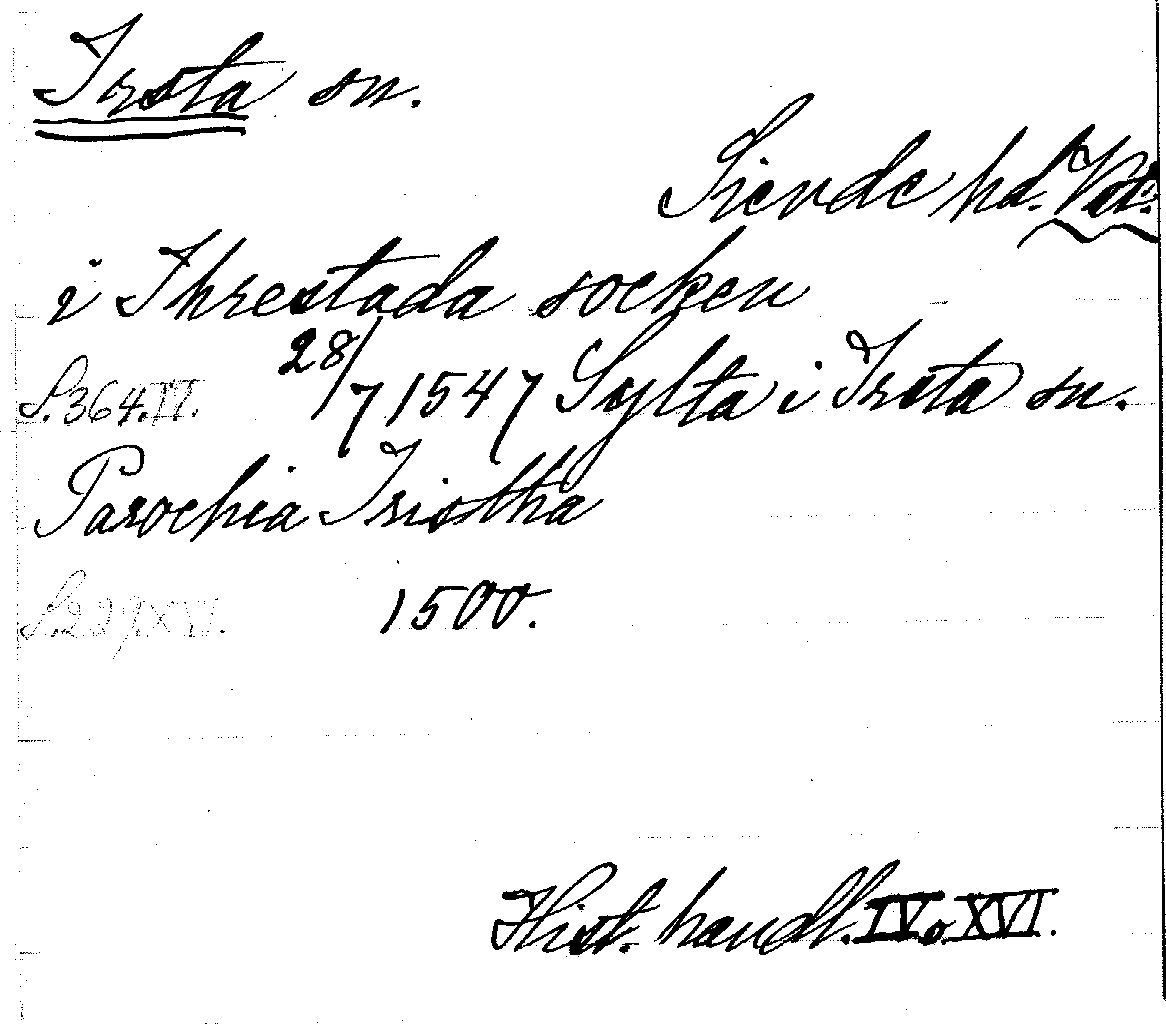 Irsta sn.
Siende hd. Vstm.
i Ihrestada socken
S. 364. II. 28/7 1547 Sylta i Irsta sn.
Parochia Iristha
S. 229. XVI. 1500.
Hist. handl. IV o XVI.